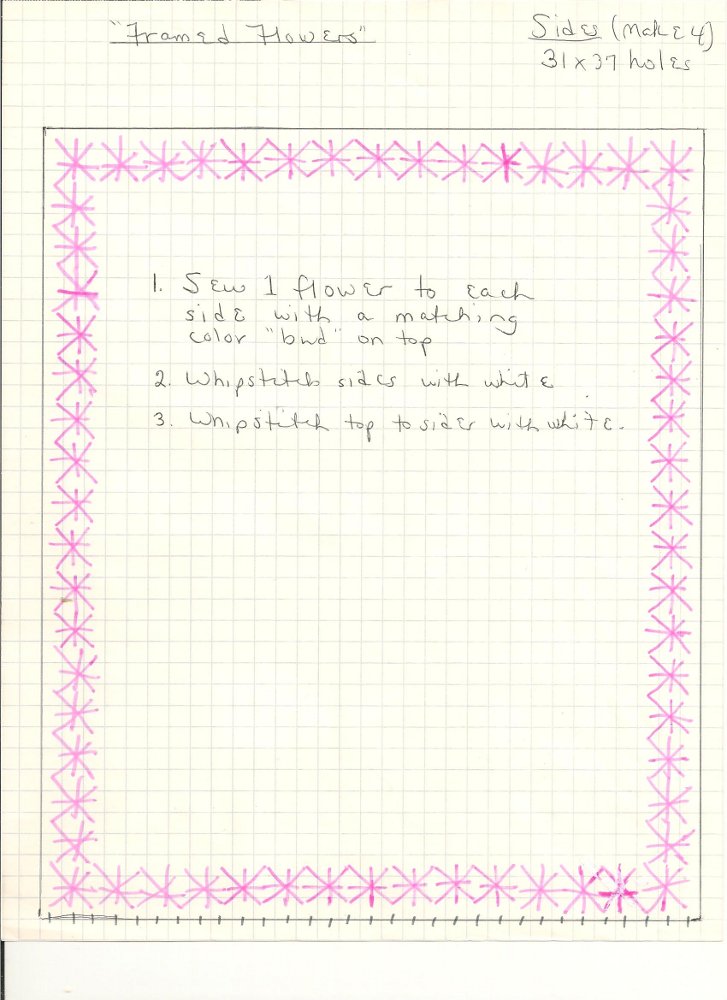 "Framed Flowers"
Sides (Make 4)
31 x 37 holes
1. Sew 1 flower to each
side with a matching
color "bud" on top
2. Whipstitch sides with white
3. Whipstitch top to sides with white.